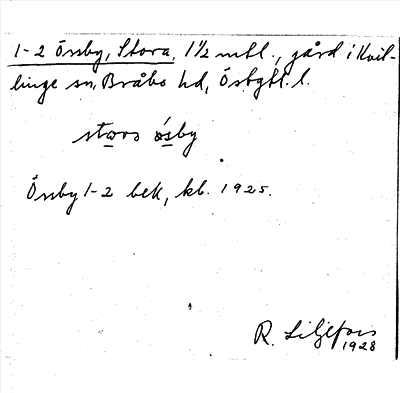 1-2 Össby, Stora, 1 1/2 mtl., gård i Kvil-
linge sn, Bråbo hd, Östgtl. l.
stora ösby
Össby 1-2 bek, kb. 1925.
R. Liljefors
1928